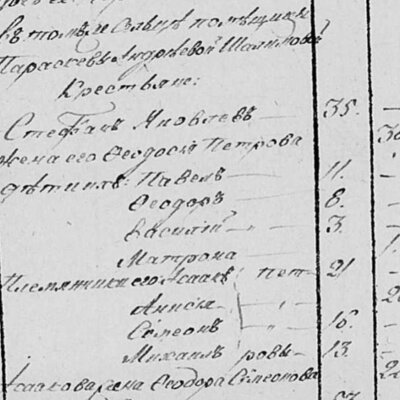 въ томъ же сельце помѣщицы
Параскевы Андреевой
Крестьяне:
Стефанъ Яковлевъ 35.
жена его Ѳеодосія Петрова 30
дѣти ихъ: Павелъ 11.
Ѳеодоръ 8.
Василій 3.
Матрона
Племянники его Исаакъ пет- 21
Анисія
Сѵмеонъ 16.
Михаилъ ровы 13.
Исаакова жена Ѳеодора Сѵмеонова